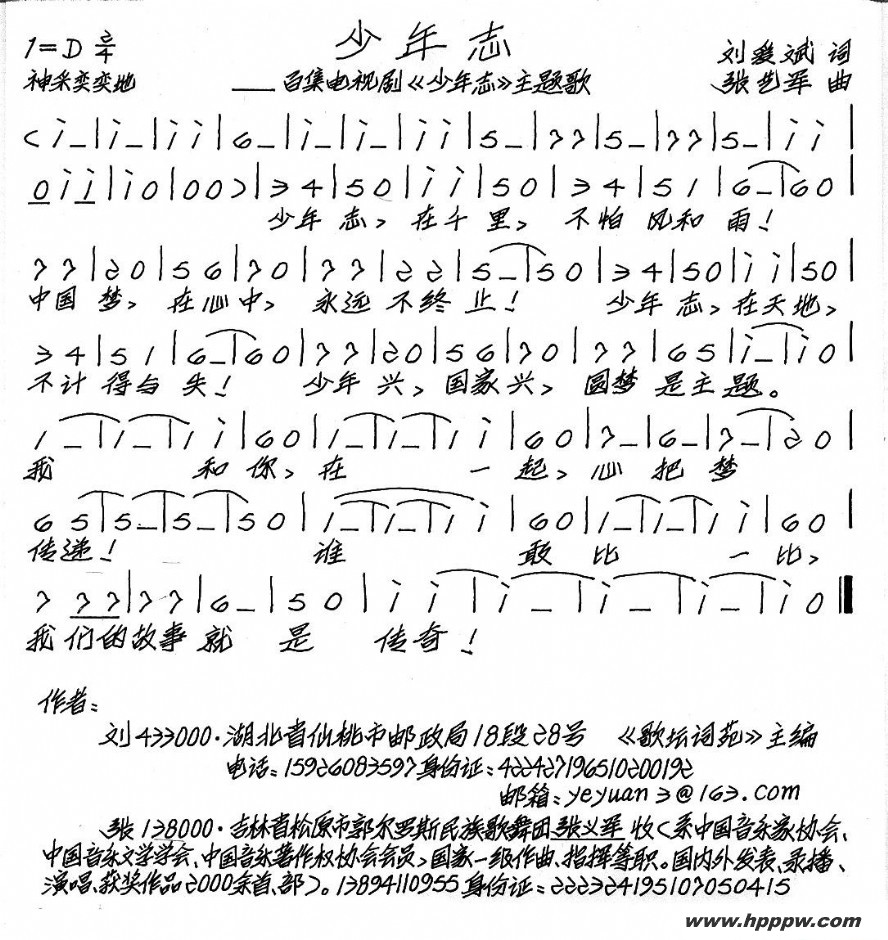 1=D 2/4
少年志
刘爱斌 词
神采奕奕地
——百集电视剧《少年志》主题歌
张艺军 曲
< i – | i – | i i | 6 – | i – | i – | i i | 5 – | 7 7 | 5 – | 7 7 | 5 – | i i |
0 i i | i 0 | 0 0 > | 3 4 | 5 0 | i i | 5 0 | 3 4 | 5 1 | 6 – | 6 0 |
少年 志，在千里，不怕风和雨！
7 7 | 2 0 | 5 6 | 7 0 | 7 7 | 2 2 | 5 – | 5 0 | 3 4 | 5 0 | i i | 5 0 |
中国 梦，在心中，永远 不终 止！ 少年 志，在天地，
3 4 | 5 1 | 6 – | 6 0 | 7 7 | 2 0 | 5 6 | 7 0 | 7 7 | 6 5 | i – | i 0 |
不计 得与 失！ 少年 兴，国家兴，圆梦 是主题。
i – | i – | i i | 6 0 | i – | i – | i i | 6 0 | 7 – | 6 – | 7 – | 2 0 |
我 和你，在 一起，心 把 梦
6 5 | 5 – | 5 – | 5 0 | i – | i – | i i | 6 0 | i – | i – | i i | 6 0 |
传递！ 谁 敢 比 一比，
7 7 7 | 7 7 | 6 – | 5 0 | i i | i – | i – | i – | i 0 ‖
我们的故事 就 是 传奇！
作者：
刘433000·湖北省仙桃市邮政局18段28号 《歌坛词苑》主编
电话：15926083597身份证：422427196510200192
邮箱：yeyuan3@163.com
张138000·吉林省松原市郭尔罗斯民族歌舞团张义军 收<系中国音乐家协会、
中国音乐文学学会、中国音乐著作权协会会员，国家一级作曲、指挥等职。国内外发表、录播、
演唱、获奖作品2000余首、部>。13894110955身份证：222324195107050415
www.hpppw.com